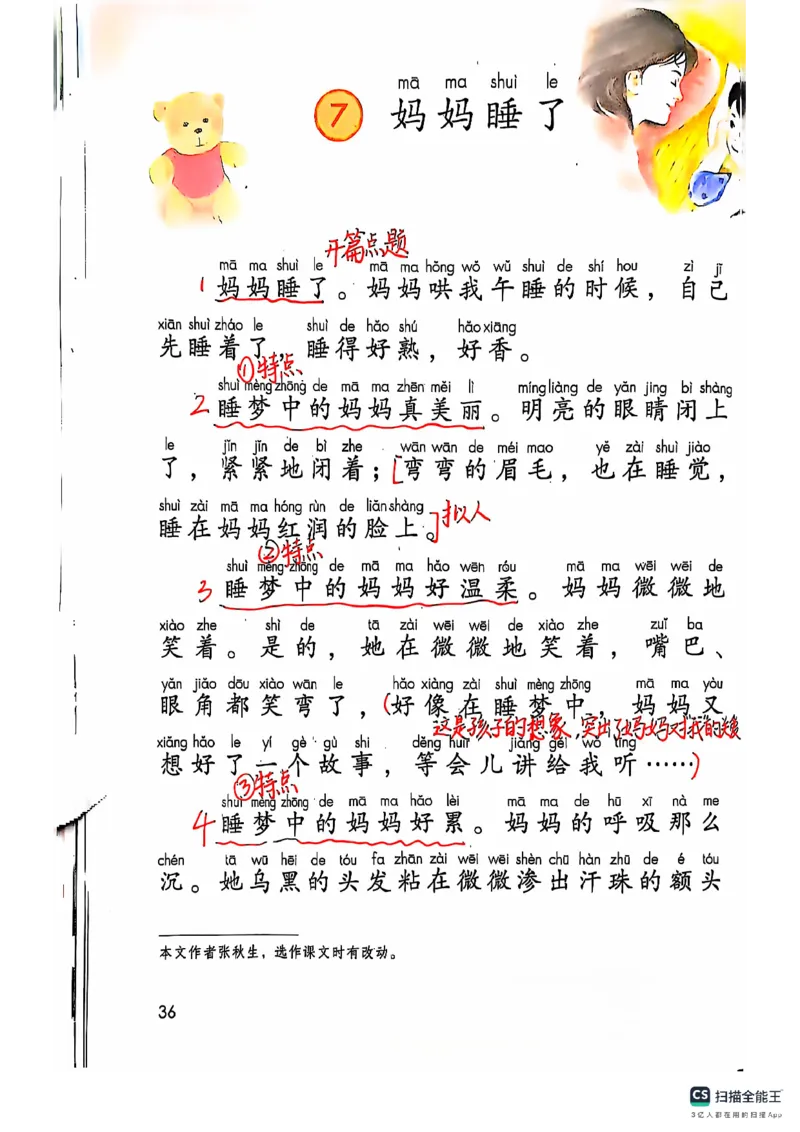 mā ma shuì le
7 妈妈睡了
开篇点题
mā ma shuì le mā ma hǒng wǒ wǔ shuì de shí hou zì jǐ
1 妈妈睡了。妈妈哄我午睡的时候，自己
xiān shuì zháo le shuì de hǎo shú hǎo xiāng
先睡着了，睡得好熟，好香。
①特点
shuì mèng zhōng de mā ma zhēn měi lì míng liàng de yǎn jing bì shàng
2 睡梦中的妈妈真美丽。明亮的眼睛闭上
le jǐn jǐn de bì zhe wān wān de méi mao yě zài shuì jiào
了，紧紧地闭着；[弯弯的眉毛，也在睡觉，
shuì zài mā ma hóng rùn de liǎn shàng
睡在妈妈红润的脸上。]拟人
②特点
shuì mèng zhōng de mā ma hǎo wēn róu mā ma wēi wēi de
3 睡梦中的妈妈好温柔。妈妈微微地
xiào zhe shì de tā zài wēi wēi de xiào zhe zuǐ ba
笑着。是的，她在微微地笑着，嘴巴、
yǎn jiǎo dōu xiào wān le hǎo xiàng zài shuì mèng zhōng mā ma yòu
眼角都笑弯了，(好像在睡梦中，妈妈又
这是孩子的想象，突出了妈妈对"我"的关爱
xiǎng hǎo le yí gè gù shi děng huìr jiǎng gěi wǒ tīng
想好了一个故事，等会儿讲给我听……)
③特点
shuì mèng zhōng de mā ma hǎo lèi mā ma de hū xī nà me
4 睡梦中的妈妈好累。妈妈的呼吸那么
chén tā wū hēi de tóu fa zhān zài wēi wēi shèn chū hàn zhū de é tóu
沉。她乌黑的头发粘在微微渗出汗珠的额头
本文作者张秋生，选作课文时有改动。
36
CS 扫描全能王
3亿人都在用的扫描App